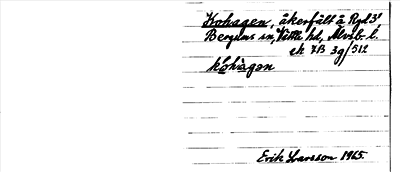 Kohagen, åkerfält å Ryd 3¹
Bergums sn, Vättle hd, Älvsb. l.
ek 7B 3g/512
kohàgən
Erik Larsson 1965.